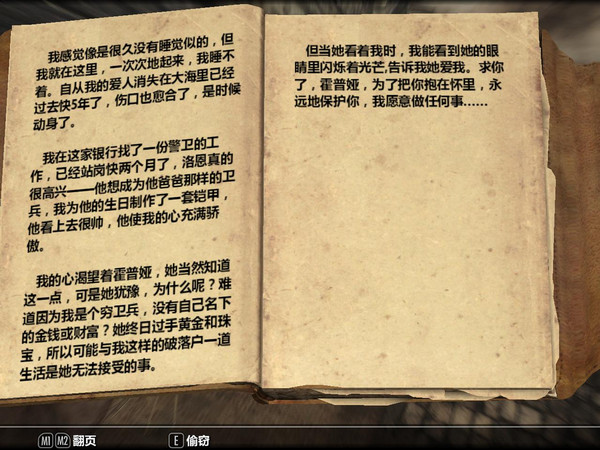 我感觉像是很久没有睡觉似的，但
我就在这里，一次次地起来，我睡不
着。自从我的爱人消失在大海里已经
过去快5年了，伤口也愈合了，是时候
动身了。
我在这家银行找了一份警卫的工
作，已经站岗快两个月了，洛恩真的
很高兴——他想成为他爸爸那样的卫
兵，我为他的生日制作了一套铠甲，
他看上去很帅，他使我的心充满骄
傲。
我的心渴望着霍普娅，她当然知道
这一点，可是她犹豫，为什么呢？难
道因为我是个穷卫兵，没有自己名下
的金钱或财富？她终日过手黄金和珠
宝，所以可能与我这样的破落户一道
生活是她无法接受的事。
但当她看着我时，我能看到她的眼
睛里闪烁着光芒,告诉我她爱我。求你
了，霍普娅，为了把你抱在怀里，永
远地保护你，我愿意做任何事......
M1 M2 翻页
E 偷窃